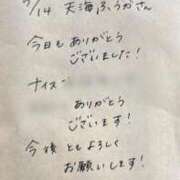 7/14 天海ふうかさん
今日もありがとう
ございました!
ナイスー
ありがとう
ございます!
今後ともよろしく
お願いします!